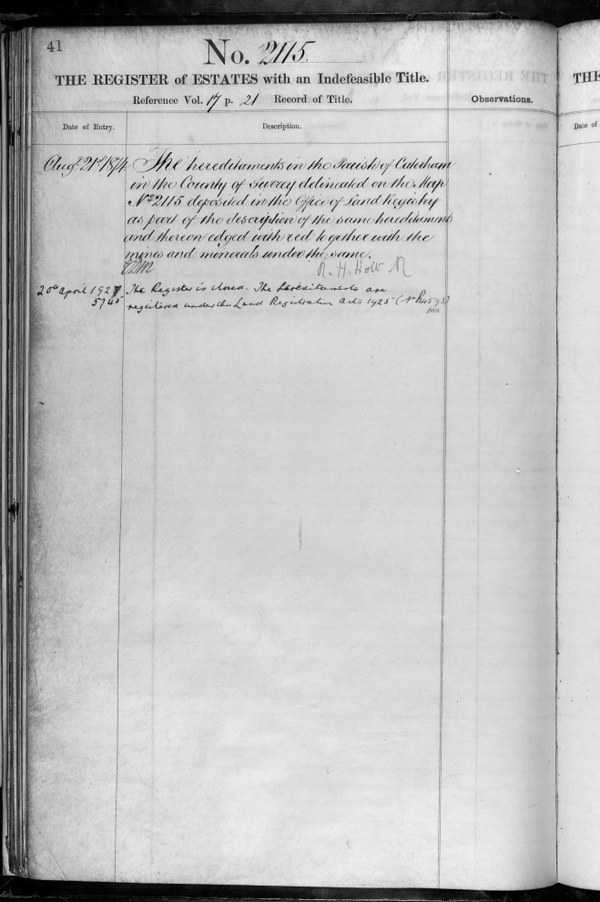 41
No. 2115.
THE REGISTER of ESTATES with an Indefeasible Title.
Reference Vol. 17 p. 21 Record of Title.
Observations.
Date of Entry.
Description.
Augt 21st 1874. The hereditaments in the Parish of Caterham
in the County of Surrey delineated on the Map
No 2115 deposited in the Office of Land Registry
as part of the description of the same hereditaments
and thereon edged with red together with the
mines and minerals under the same.
R. H. Holt R
20th April 1927 The Register is closed. The hereditaments are
5745 registered under the Land Registration Act 1925
THE
Date of